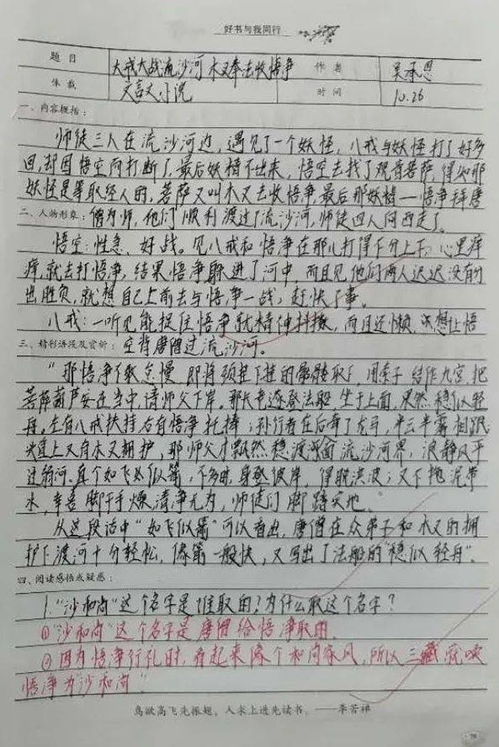 好书与我同行
题目 八戒大战流沙河 木叉奉法收悟净 作者 吴承恩
体裁 文言文小说 时间 10.26
一、内容概括:
师徒三人在流沙河边,遇见了一个妖怪,八戒与妖怪打了好多
回,却因悟空而打断了,最后妖精不出来,悟空去找了观音菩萨,得知那
妖怪是等取经人的,菩萨又叫木叉去收悟净,最后那妖精——悟净拜唐
二、人物形象: 僧为师,他们顺利渡过了流沙河,师徒四人向西走了。
悟空:性急、好战。见八戒和悟净在那儿打得不分上下,心里痒
痒,就去打悟净,结果悟净躲进了河中,而且见他们两人迟迟没有分
出胜负,就想自己上前去与悟净一战,赶快了事。
八戒:一听见能捉住悟净就精神抖擞,而且还懒,还想让悟
三、精彩语段及赏析: 空背唐僧过流沙河。
“那悟净不敢怠慢,即将颈项下挂的骷髅取下,用索子结作九宫,把
菩萨葫芦安在当中,请师父下岸。那长老遂登法船,坐于上面,果然稳似轻
舟,左有八戒扶持,右有悟净托捧;孙行者在后牵了龙马,半云半雾相跟;
头直上又有木叉拥护,那师父才飘然稳渡流沙河界,浪静风平
过弱河。真个如飞似箭,不多时,身登彼岸,得脱洪波;又不拖泥带
水,幸喜脚干手燥,清净无为,师徒们脚踏实地。
从这段话中“如飞似箭”可以看出,唐僧在众弟子和木叉的拥
护下渡河十分轻松,像箭一般快,又写出了法船的“稳似轻舟”。
四、阅读感悟或疑惑:
1.“沙和尚”这个名字是谁取的?为什么取这个名字?
①“沙和尚”这个名字是唐僧给悟净取的。
②因为悟净行礼时,看起来像个和尚家风,所以三藏就唤
悟净为“沙和尚”
鸟欲高飞先振翅,人求上进先读书。——李苦禅